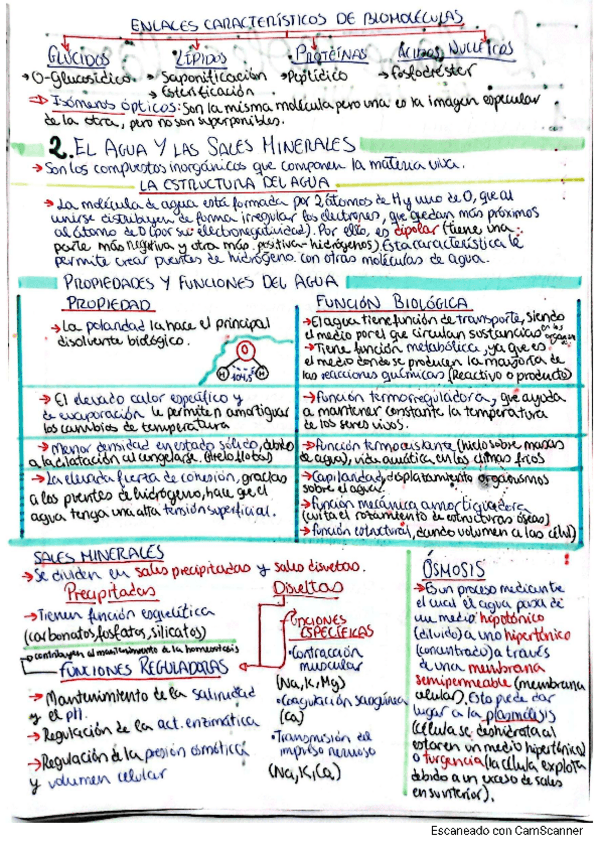 ENLACES CARACTERÍSTICOS DE BIOMOLÉCULAS
GLÚCIDOS
→O-Glucosídico
LÍPIDOS
→Saponificación
→Esterificación
PROTEÍNAS
→Peptídico
ÁCIDOS NUCLEICOS
→Fosfodiéster
⇒ Isómeros ópticos: Son la misma molécula pero una es la imagen especular
de la otra, pero no son superponibles.
2. EL AGUA Y LAS SALES MINERALES
→ Son los compuestos inorgánicos que componen la materia viva.
LA ESTRUCTURA DEL AGUA
→ La molécula de agua está formada por 2 átomos de H y uno de O, que al
unirse distribuyen de forma irregular los electrones, que quedan más próximos
al átomo de O (por su electronegatividad). Por ello, es dipolar (tiene una
parte más negativa y otra más positiva-hidrógenos). Esta característica le
permite crear puentes de hidrógeno con otras moléculas de agua.
PROPIEDADES Y FUNCIONES DEL AGUA
PROPIEDAD
→ La polaridad la hace el principal
disolvente biológico.
O
H
H
104,5
FUNCIÓN BIOLÓGICA
→ El agua tiene función de transporte, siendo
el medio por el que circulan sustancias en los
→ Tiene función metabólica, ya que es
el medio donde se producen la mayoría de
las reacciones químicas (Reactivo o producto)
→ El elevado calor específico y
de evaporación le permiten amortiguar
los cambios de temperatura
→ función termorreguladora, que ayuda
a mantener constante la temperatura
de los seres vivos.
→ Menor densidad en estado sólido, debido
a la dilatación al congelarse. (Hielo flota)
→ función termoaislante (hielo sobre masas
de agua), vida acuática en los climas fríos
→ La elevada fuerza de cohesión, gracias
a los puentes de hidrógeno, hace que el
agua tenga una alta tensión superficial.
→ Capilaridad, desplazamiento organismos
sobre el agua.
→ función mecánica amortiguadora
(evita el rozamiento de estructuras óseas)
→ función estructural, dando volumen a las célul
SALES MINERALES
→ Se dividen en sales precipitadas y sales disueltas.
Precipitadas
→ Tienen función esquelética
(carbonatos, fosfatos, silicatos)
contribuyen al mantenimiento de la homeostasis
FUNCIONES REGULADORAS
→ Mantenimiento de la salinidad
y el pH.
→ Regulación de la act. enzimática
→ Regulación de la presión osmótica
y volumen celular
Disueltas
FUNCIONES
ESPECÍFICAS
• Contracción
muscular
(Na, K, Mg)
• Coagulación sanguínea
(Ca)
• Transmisión del
impulso nervioso
(Na, K, Ca)
ÓSMOSIS
→ Es un proceso mediante
el cual el agua pasa de
un medio hipotónico
(diluido) a uno hipertónico
(concentrado) a través
de una membrana
semipermeable (membrana
celular). Esto puede dar
lugar a la plasmólisis
(célula se deshidrata al
estar en un medio hipertónico)
o turgencia (la célula explota
debido a un exceso de sales
en su interior).
Escaneado con CamScanner